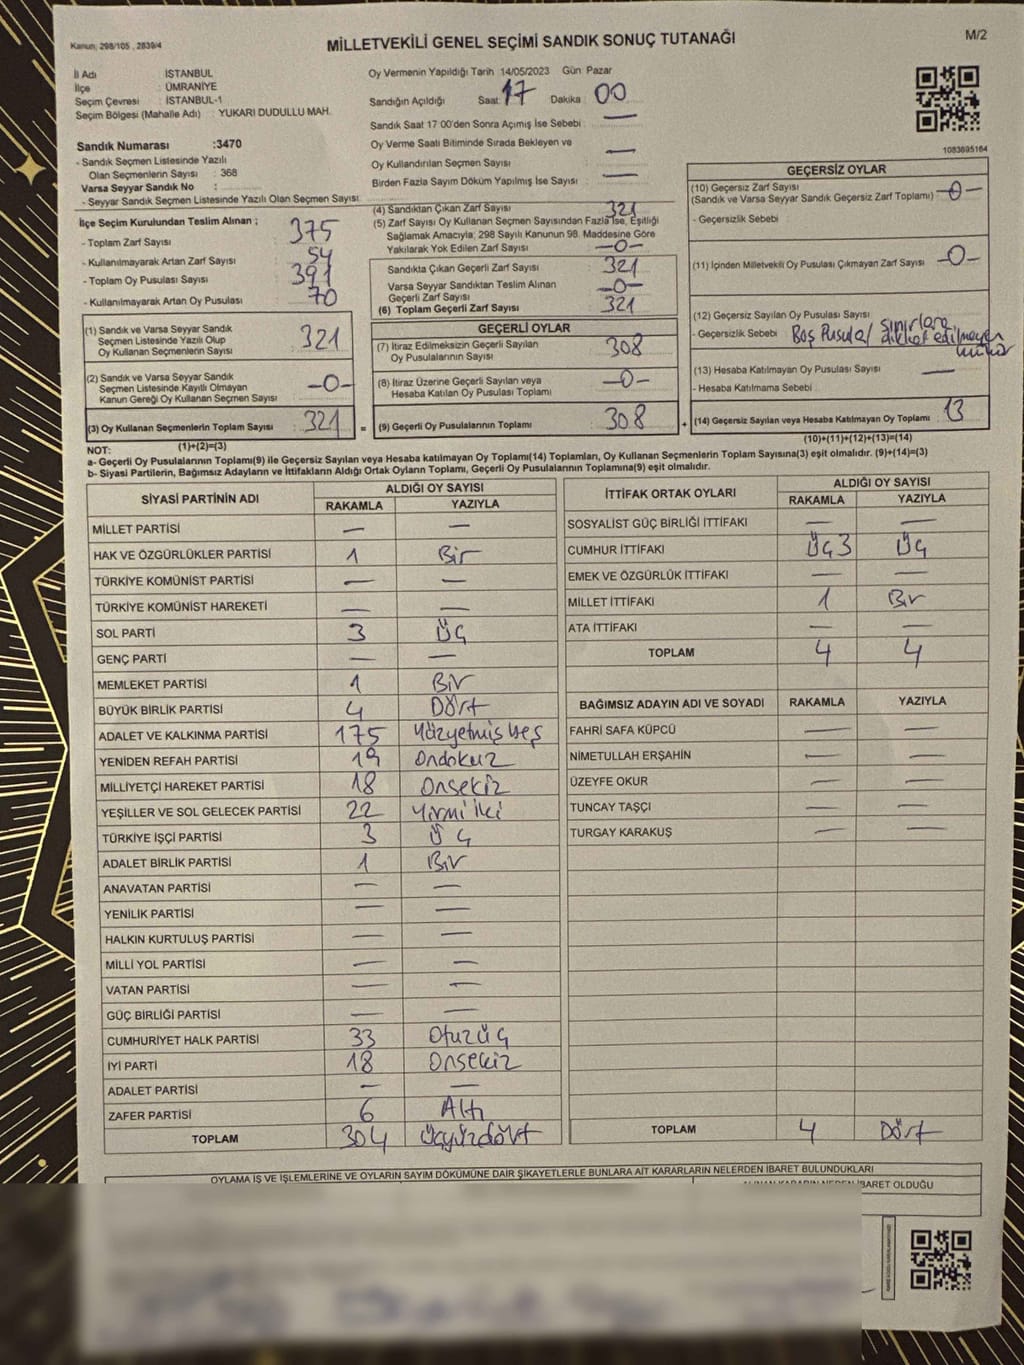 Kanun; 298/105 , 2839/4
MİLLETVEKİLİ GENEL SEÇİMİ SANDIK SONUÇ TUTANAĞI
M/2
İl Adı : İSTANBUL
İlçe : ÜMRANİYE
Seçim Çevresi : İSTANBUL-1
Seçim Bölgesi (Mahalle Adı) : YUKARI DUDULLU MAH.
Oy Vermenin Yapıldığı Tarih 14/05/2023 Gün Pazar
Sandığın Açıldığı Saat: 17 Dakika 00
Sandık Saat 17 00'den Sonra Açımış İse Sebebi : —
Oy Verme Saati Bitiminde Sırada Bekleyen ve
Oy Kullandırılan Seçmen Sayısı : —
Birden Fazla Sayım Döküm Yapılmış İse Sayısı : —
1083695164
Sandık Numarası :3470
- Sandık Seçmen Listesinde Yazılı
Olan Seçmenlerin Sayısı : 368
Varsa Seyyar Sandık No :
- Seyyar Sandık Seçmen Listesinde Yazılı Olan Seçmen Sayısı:
İlçe Seçim Kurulundan Teslim Alınan ;
- Toplam Zarf Sayısı : 375
- Kullanılmayarak Artan Zarf Sayısı : 54
- Toplam Oy Pusulası Sayısı : 391
- Kullanılmayarak Artan Oy Pusulası : 70
(1) Sandık ve Varsa Seyyar Sandık
Seçmen Listesinde Yazılı Olup
Oy Kullanan Seçmenlerin Sayısı : 321
(2) Sandık ve Varsa Seyyar Sandık
Seçmen Listesinde Kayıtlı Olmayan
Kanun Gereği Oy Kullanan Seçmen Sayısı : —0—
(3) Oy Kullanan Seçmenlerin Toplam Sayısı : 321
(1)+(2)=(3)
(4) Sandıktan Çıkan Zarf Sayısı : 321
(5) Zarf Sayısı Oy Kullanan Seçmen Sayısından Fazla İse, Eşitliği
Sağlamak Amacıyla; 298 Sayılı Kanunun 98. Maddesine Göre
Yakılarak Yok Edilen Zarf Sayısı : —0—
Sandıkta Çıkan Geçerli Zarf Sayısı : 321
Varsa Seyyar Sandıktan Teslim Alınan
Geçerli Zarf Sayısı : —0—
(6) Toplam Geçerli Zarf Sayısı : 321
GEÇERLİ OYLAR
(7) İtiraz Edilmeksizin Geçerli Sayılan
Oy Pusulalarının Sayısı : 308
(8) İtiraz Üzerine Geçerli Sayılan veya
Hesaba Katılan Oy Pusulası Toplamı : —0—
= (9) Geçerli Oy Pusulalarının Toplamı : 308
GEÇERSİZ OYLAR
(10) Geçersiz Zarf Sayısı
(Sandık ve Varsa Seyyar Sandık Geçersiz Zarf Toplamı) : —0—
- Geçersizlik Sebebi :
(11) İçinden Milletvekili Oy Pusulası Çıkmayan Zarf Sayısı : —0—
(12) Geçersiz Sayılan Oy Pusulası Sayısı :
- Geçersizlik Sebebi : Boş Pusula / sınırlara dikkat edilmeyen mühür
(13) Hesaba Katılmayan Oy Pusulası Sayısı : —
- Hesaba Katılmama Sebebi :
+ (14) Geçersiz Sayılan veya Hesaba Katılmayan Oy Toplamı : 13
(10)+(11)+(12)+(13)=(14)
NOT:
a- Geçerli Oy Pusulalarının Toplamı(9) ile Geçersiz Sayılan veya Hesaba katılmayan Oy Toplamı(14) Toplamları, Oy Kullanan Seçmenlerin Toplam Sayısına(3) eşit olmalıdır. (9)+(14)=(3)
b- Siyasi Partilerin, Bağımsız Adayların ve İttifakların Aldığı Ortak Oyların Toplamı, Geçerli Oy Pusulalarının Toplamına(9) eşit olmalıdır.
SİYASİ PARTİNİN ADI ALDIĞI OY SAYISI
RAKAMLA YAZIYLA
MİLLET PARTİSİ — —
HAK VE ÖZGÜRLÜKLER PARTİSİ 1 Bir
TÜRKİYE KOMÜNİST PARTİSİ — —
TÜRKİYE KOMÜNİST HAREKETİ — —
SOL PARTİ 3 Üç
GENÇ PARTİ — —
MEMLEKET PARTİSİ 1 Bir
BÜYÜK BİRLİK PARTİSİ 4 Dört
ADALET VE KALKINMA PARTİSİ 175 Yüzyetmişbeş
YENİDEN REFAH PARTİSİ 19 Ondokuz
MİLLİYETÇİ HAREKET PARTİSİ 18 Onsekiz
YEŞİLLER VE SOL GELECEK PARTİSİ 22 Yirmi iki
TÜRKİYE İŞÇİ PARTİSİ 3 Üç
ADALET BİRLİK PARTİSİ 1 Bir
ANAVATAN PARTİSİ — —
YENİLİK PARTİSİ — —
HALKIN KURTULUŞ PARTİSİ — —
MİLLİ YOL PARTİSİ — —
VATAN PARTİSİ — —
GÜÇ BİRLİĞİ PARTİSİ — —
CUMHURİYET HALK PARTİSİ 33 Otuzüç
İYİ PARTİ 18 Onsekiz
ADALET PARTİSİ — —
ZAFER PARTİSİ 6 Altı
TOPLAM 304 Üçyüzdört
İTTİFAK ORTAK OYLARI ALDIĞI OY SAYISI
RAKAMLA YAZIYLA
SOSYALİST GÜÇ BİRLİĞİ İTTİFAKI — —
CUMHUR İTTİFAKI Üç3 Üç
EMEK VE ÖZGÜRLÜK İTTİFAKI — —
MİLLET İTTİFAKI 1 Bir
ATA İTTİFAKI — —
TOPLAM 4 4
BAĞIMSIZ ADAYIN ADI VE SOYADI RAKAMLA YAZIYLA
FAHRİ SAFA KÜPCÜ — —
NİMETULLAH ERŞAHİN — —
ÜZEYFE OKUR — —
TUNCAY TAŞÇI — —
TURGAY KARAKUŞ — —
TOPLAM 4 Dört
OYLAMA İŞ VE İŞLEMLERİNE VE OYLARIN SAYIM DÖKÜMÜNE DAİR ŞİKAYETLERLE BUNLARA AİT KARARLARIN NELERDEN İBARET BULUNDUKLARI
İBARET OLDUĞU